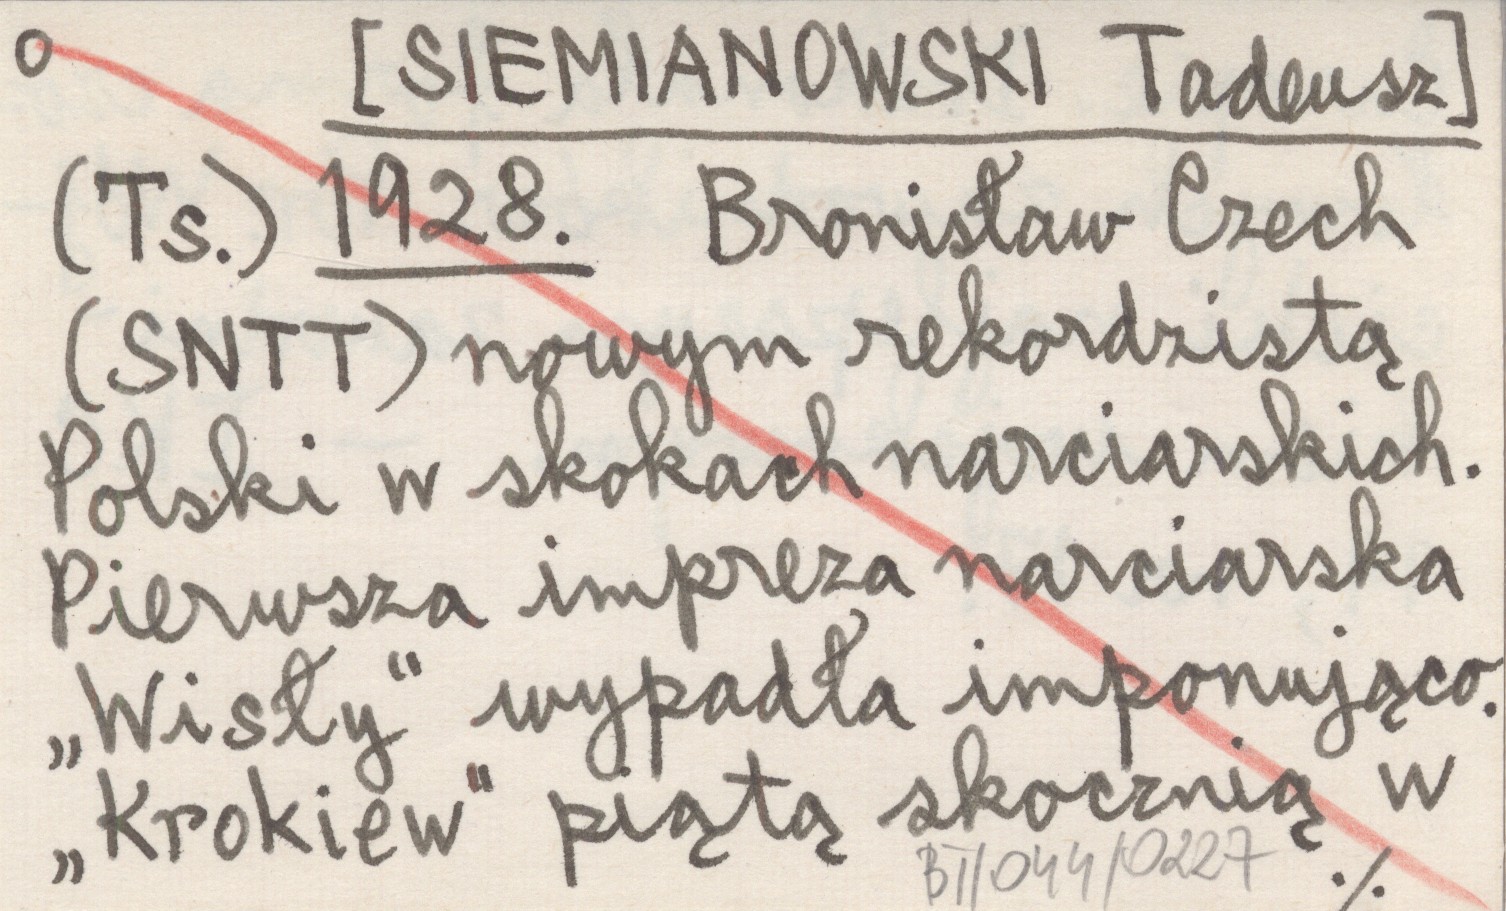 o [SIEMIANOWSKI Tadeusz]
(Ts.) 1928. Bronisław Czech
(SNTT) nowym rekordzistą
Polski w skokach narciarskich.
Pierwsza impreza narciarska
„Wisły“ wypadła imponująco.
„Krokiew“ piątą skocznią w
BI/044/0227 ./.